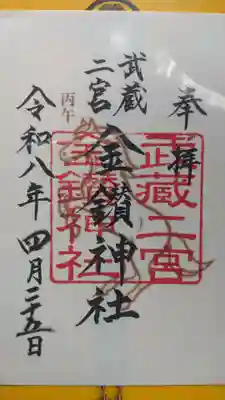 奉拝
武蔵
二宮
金鑚神社
丙午
令和八年 四月二十五日
武蔵二宮
金鑚神社